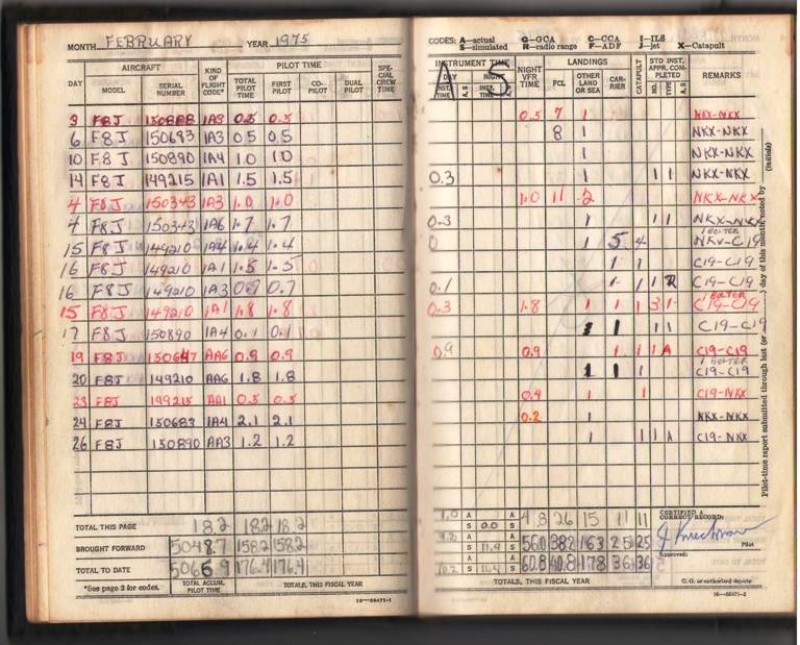 MONTH FEBRUARY YEAR 1975
AIRCRAFT PILOT TIME
DAY MODEL SERIAL NUMBER KIND OF FLIGHT CODE* TOTAL PILOT TIME FIRST PILOT CO-PILOT DUAL PILOT SPE-CIAL CREW TIME
3 F8J 0.5 0.5
6 F8J 150693 1A3 0.5 0.5
10 F8J 150890 1A4 1.0 1.0
14 F8J 149215 1A1 1.5 1.5
4 F8J 150343 1A3 1.0 1.0
4 F8J 150343 1A6 1.7 1.7
15 F8J 149210 1A4 1.4 1.4
16 F8J 149210 1A1 1.5 1.5
16 F8J 149210 1A3 0.7 0.7
15 F8J 149210 1A1 1.8 1.8
17 F8J 150890 1A4 0.1 0.1
19 F8J 150647 AA6 0.9 0.9
20 F8J 149210 AA6 1.8 1.8
23 F8J AA1 0.5 0.5
24 F8J 150683 1A4 2.1 2.1
26 F8J 150890 AA3 1.2 1.2
TOTAL THIS PAGE 18.2 18.2 18.2
BROUGHT FORWARD 5048.7 158.2 158.2
TOTAL TO DATE 5066.9 176.4 176.4
*See page 2 for codes. TOTAL ACCUM. PILOT TIME TOTALS, THIS FISCAL YEAR
CODES: A—actual G—GCA C—CCA I—ILS
S—simulated R—radio range F—ADF J—jet X—Catapult
INSTRUMENT TIME NIGHT VFR TIME LANDINGS CATAPULT STD INST. APPR. COM-PLETED REMARKS
DAY NIGHT
INST. TIME A, S INST. TIME A, S FCL OTHER LAND OR SEA CAR-RIER NO. TYPE A, S
A S
0.5 7 1 NKX-NKX
8 1 NKX-NKX
1 NKX-NKX
0.3 1 1 1 NKX-NKX
1.0 11 2 NKX-NKX
0.3 1 1 1 NKX-NKX
0 1 5 4
1 1 C19-C19
0.1 1 1 1 R C19-C19
0.3 1.8 1 1 1 3 1 C19-C19
1 1 1 1 C19-C19
0.9 0.9 1 1 1 A C19-C19
1 1 1 C19-C19
0.4 1 1 C19-NKX
0.2 1 NKX-NKX
1 1 1 A C19-NKX
1.0 A A 4.8 26 15 11 11 CERTIFIED A CORRECT RECORD:
S 0.0 S
9.2 A A 56.0 382 163 25 25 Pilot
S 11.4 S
10.2 S 11.4 S 60.8 408 178 36 36 Approved:
TOTALS, THIS FISCAL YEAR C. O. or authorized deputy
16—66471-1
16—66471-2
Pilot-time report submitted through last (or day of this month, noted by (Initials)